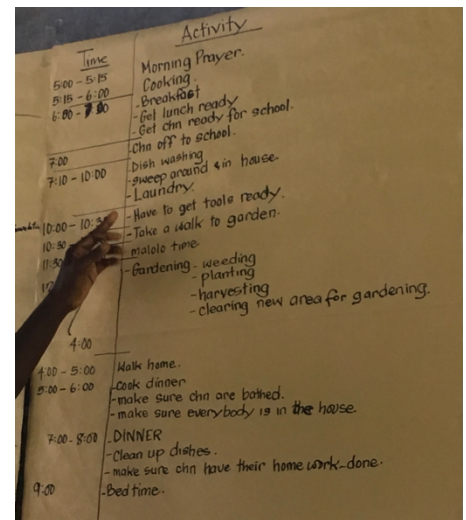 Time Activity
5:00 - 5:15 Morning Prayer.
5:15 - 6:00 Cooking.
6:00 - 7:00 - Breakfast
- Get lunch ready
- Get chn ready for school.
7:00 - Chn off to school.
7:10 - 10:00 - Dish washing
- sweep around & in house.
- Laundry.
10:00 - 10:30 - Have to get tools ready.
10:30 - Take a walk to garden.
11:30 malolo time.
- Gardening - weeding
- planting
- harvesting
- clearing new area for gardening.
4:00
4:00 - 5:00 Walk home.
5:00 - 6:00 - Cook dinner
- make sure chn are bathed.
- make sure everybody is in the house.
7:00 - 8:00 - DINNER
- Clean up dishes.
- make sure chn have their home work done.
9:00 - Bed time.